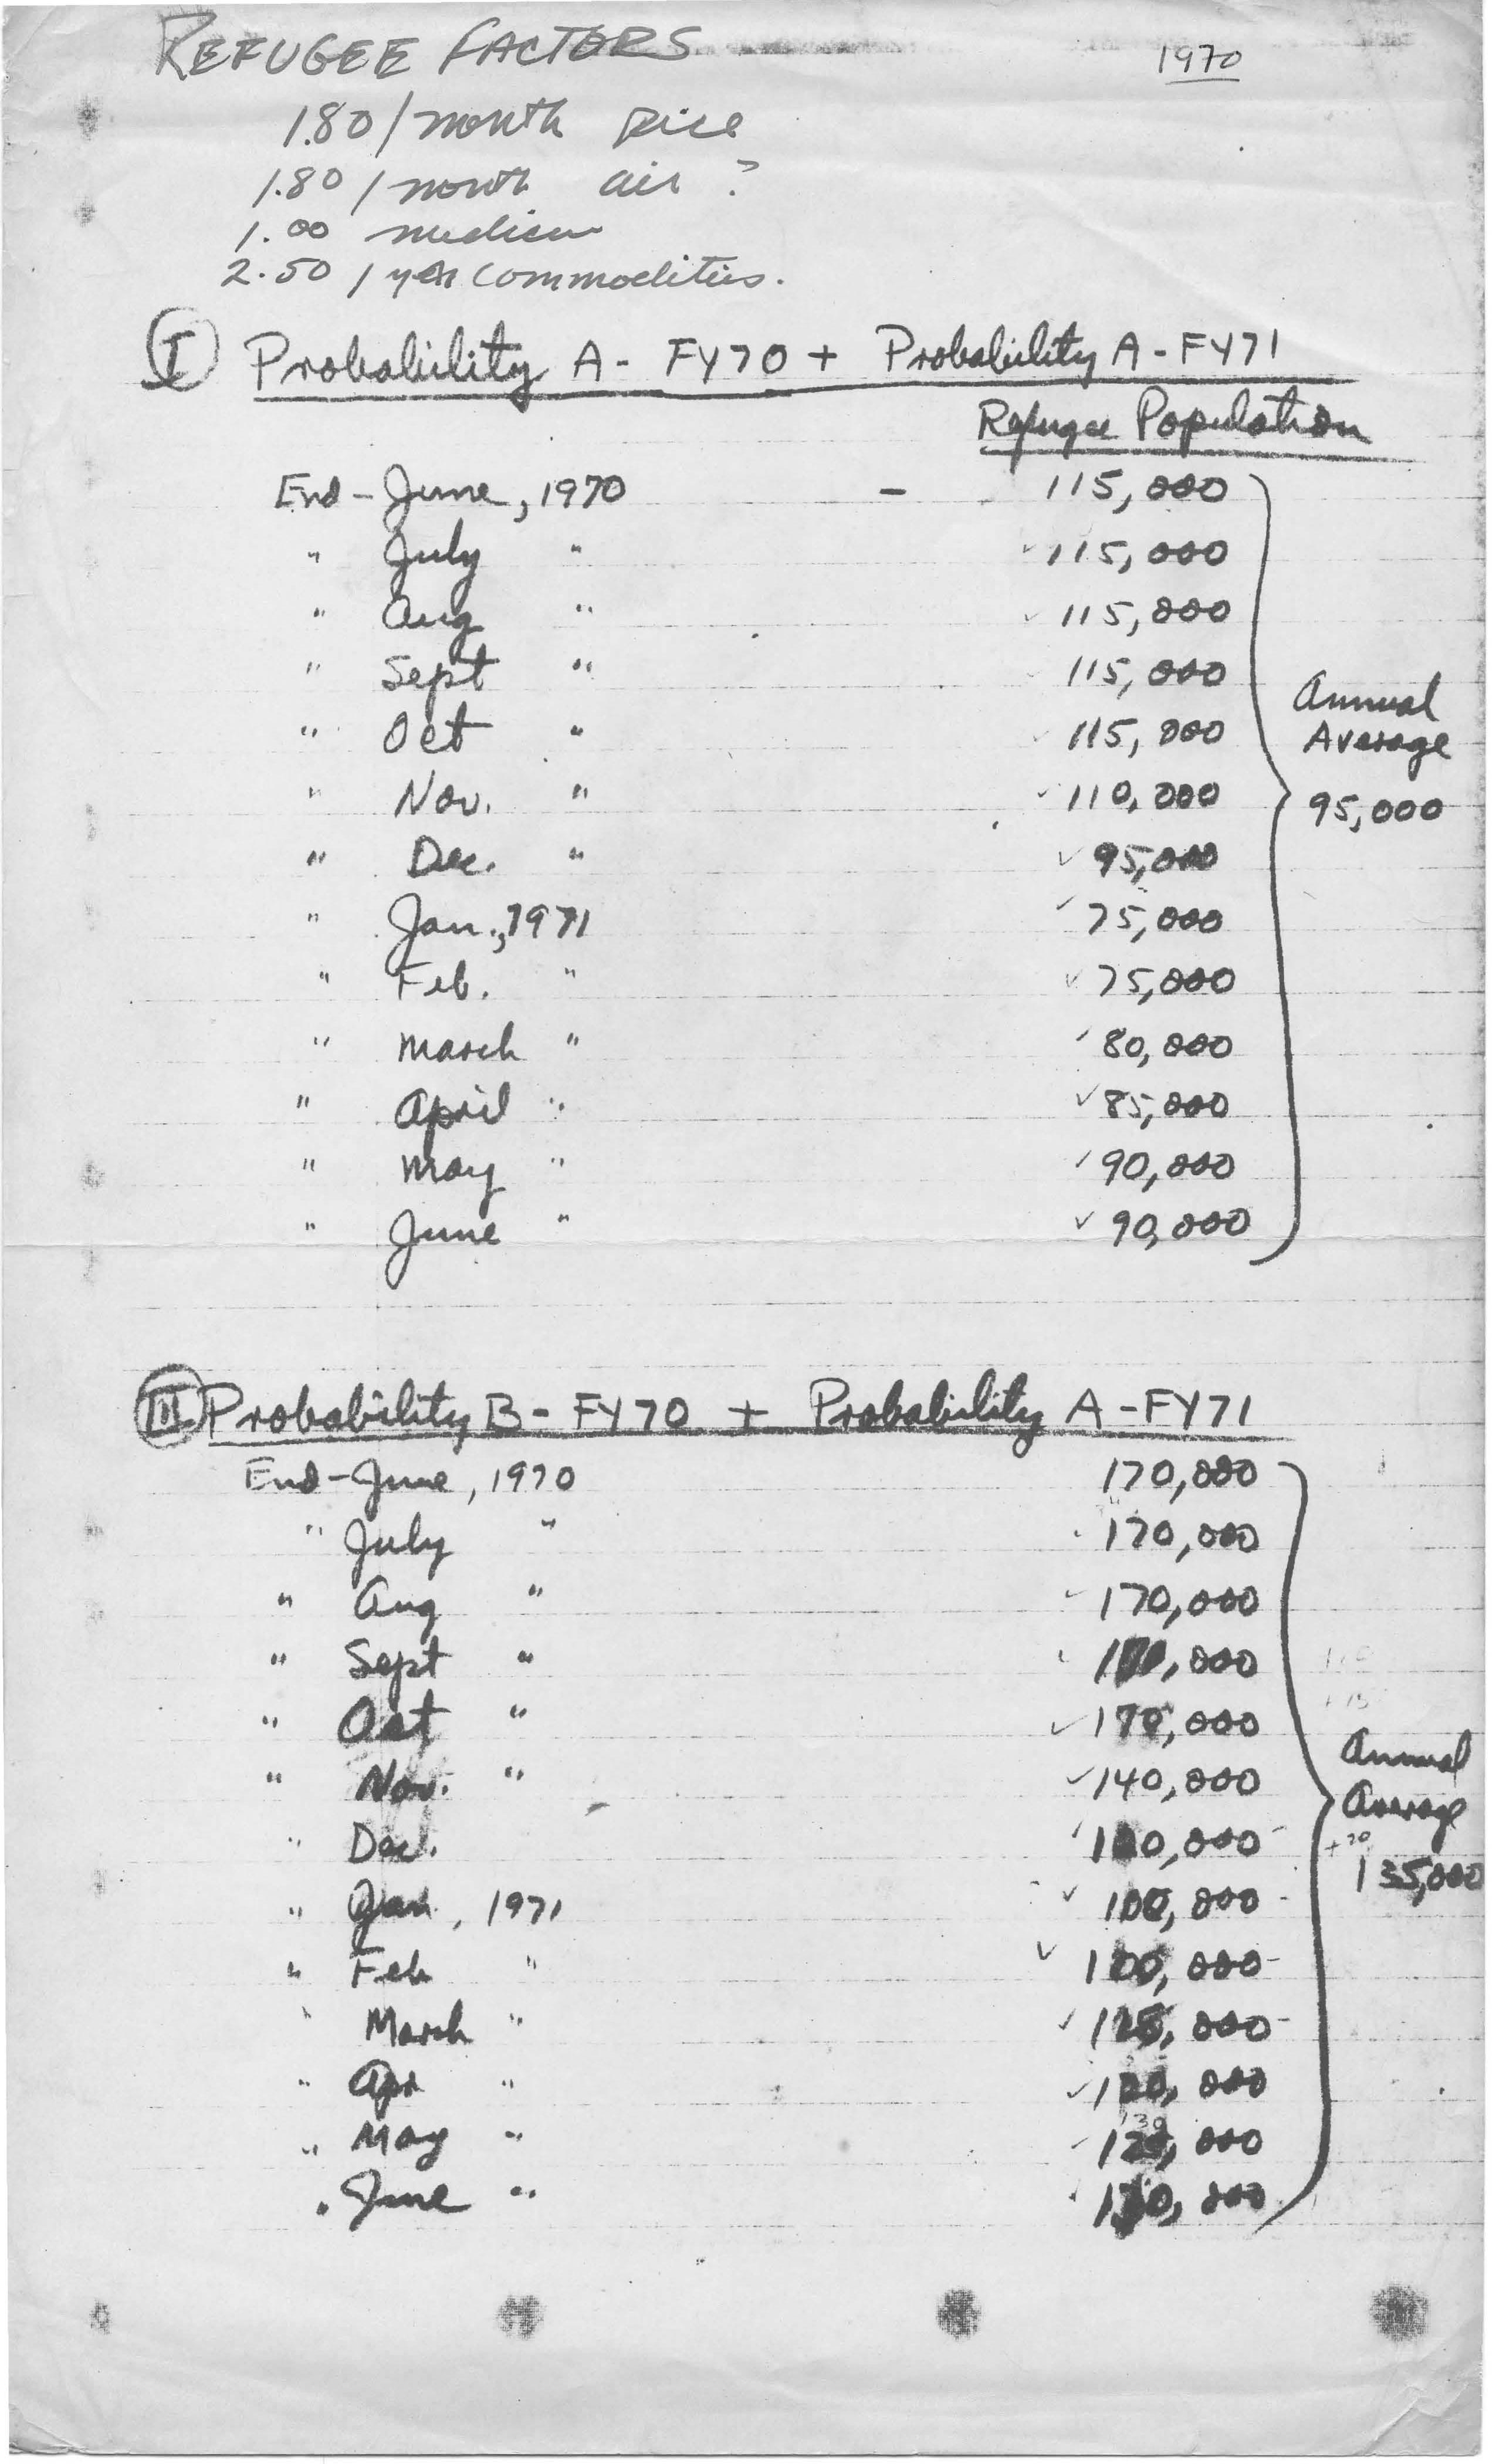 REFUGEE FACTORS
1970
1.80 / month rice
1.80 / month air ?
1.00 medicine
2.50 / year commodities.
I Probability A - FY70 + Probability A - FY71
Refugee Population
End - June, 1970 - 115,000
" July " 115,000
" Aug " 115,000
" Sept " 115,000
" Oct " 115,000
" Nov. " 110,000
" Dec. " 95,000
" Jan., 1971 75,000
" Feb. " 75,000
" March " 80,000
" April " 85,000
" May " 90,000
" June " 90,000
Annual
Average
95,000
III Probability B - FY70 + Probability A - FY71
End - June, 1970 170,000
" July " 170,000
" Aug " 170,000
" Sept "
" Oct " 170,000
" Nov. " 140,000
" Dec. 120,000
" Jan, 1971 100,000
" Feb " 100,000
" March "
" Apr " 120,000
" May "
" June "
Annual
Average
135,000